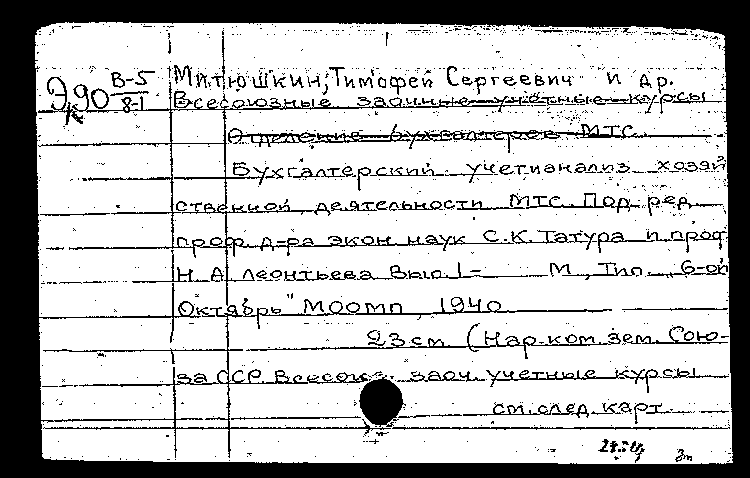 Э90 В-5/8-1
Митюшкин, Тимофей Сергеевич и др.
Всесоюзные заочные учётные курсы
Отделение бухгалтеров МТС.
Бухгалтерский учет и анализ хозяй
ственной деятельности МТС. Под ред.
проф. д-ра экон. наук С.К. Татура и проф
Н.А. Леонтьева Вып. 1- М., Тип. "6-ой
Октябрь" Моомп, 1940
23 см. (Нар. ком. зем. Сою-
за ССР. Всесоюз. заоч. учетные курсы
см. след. карт.